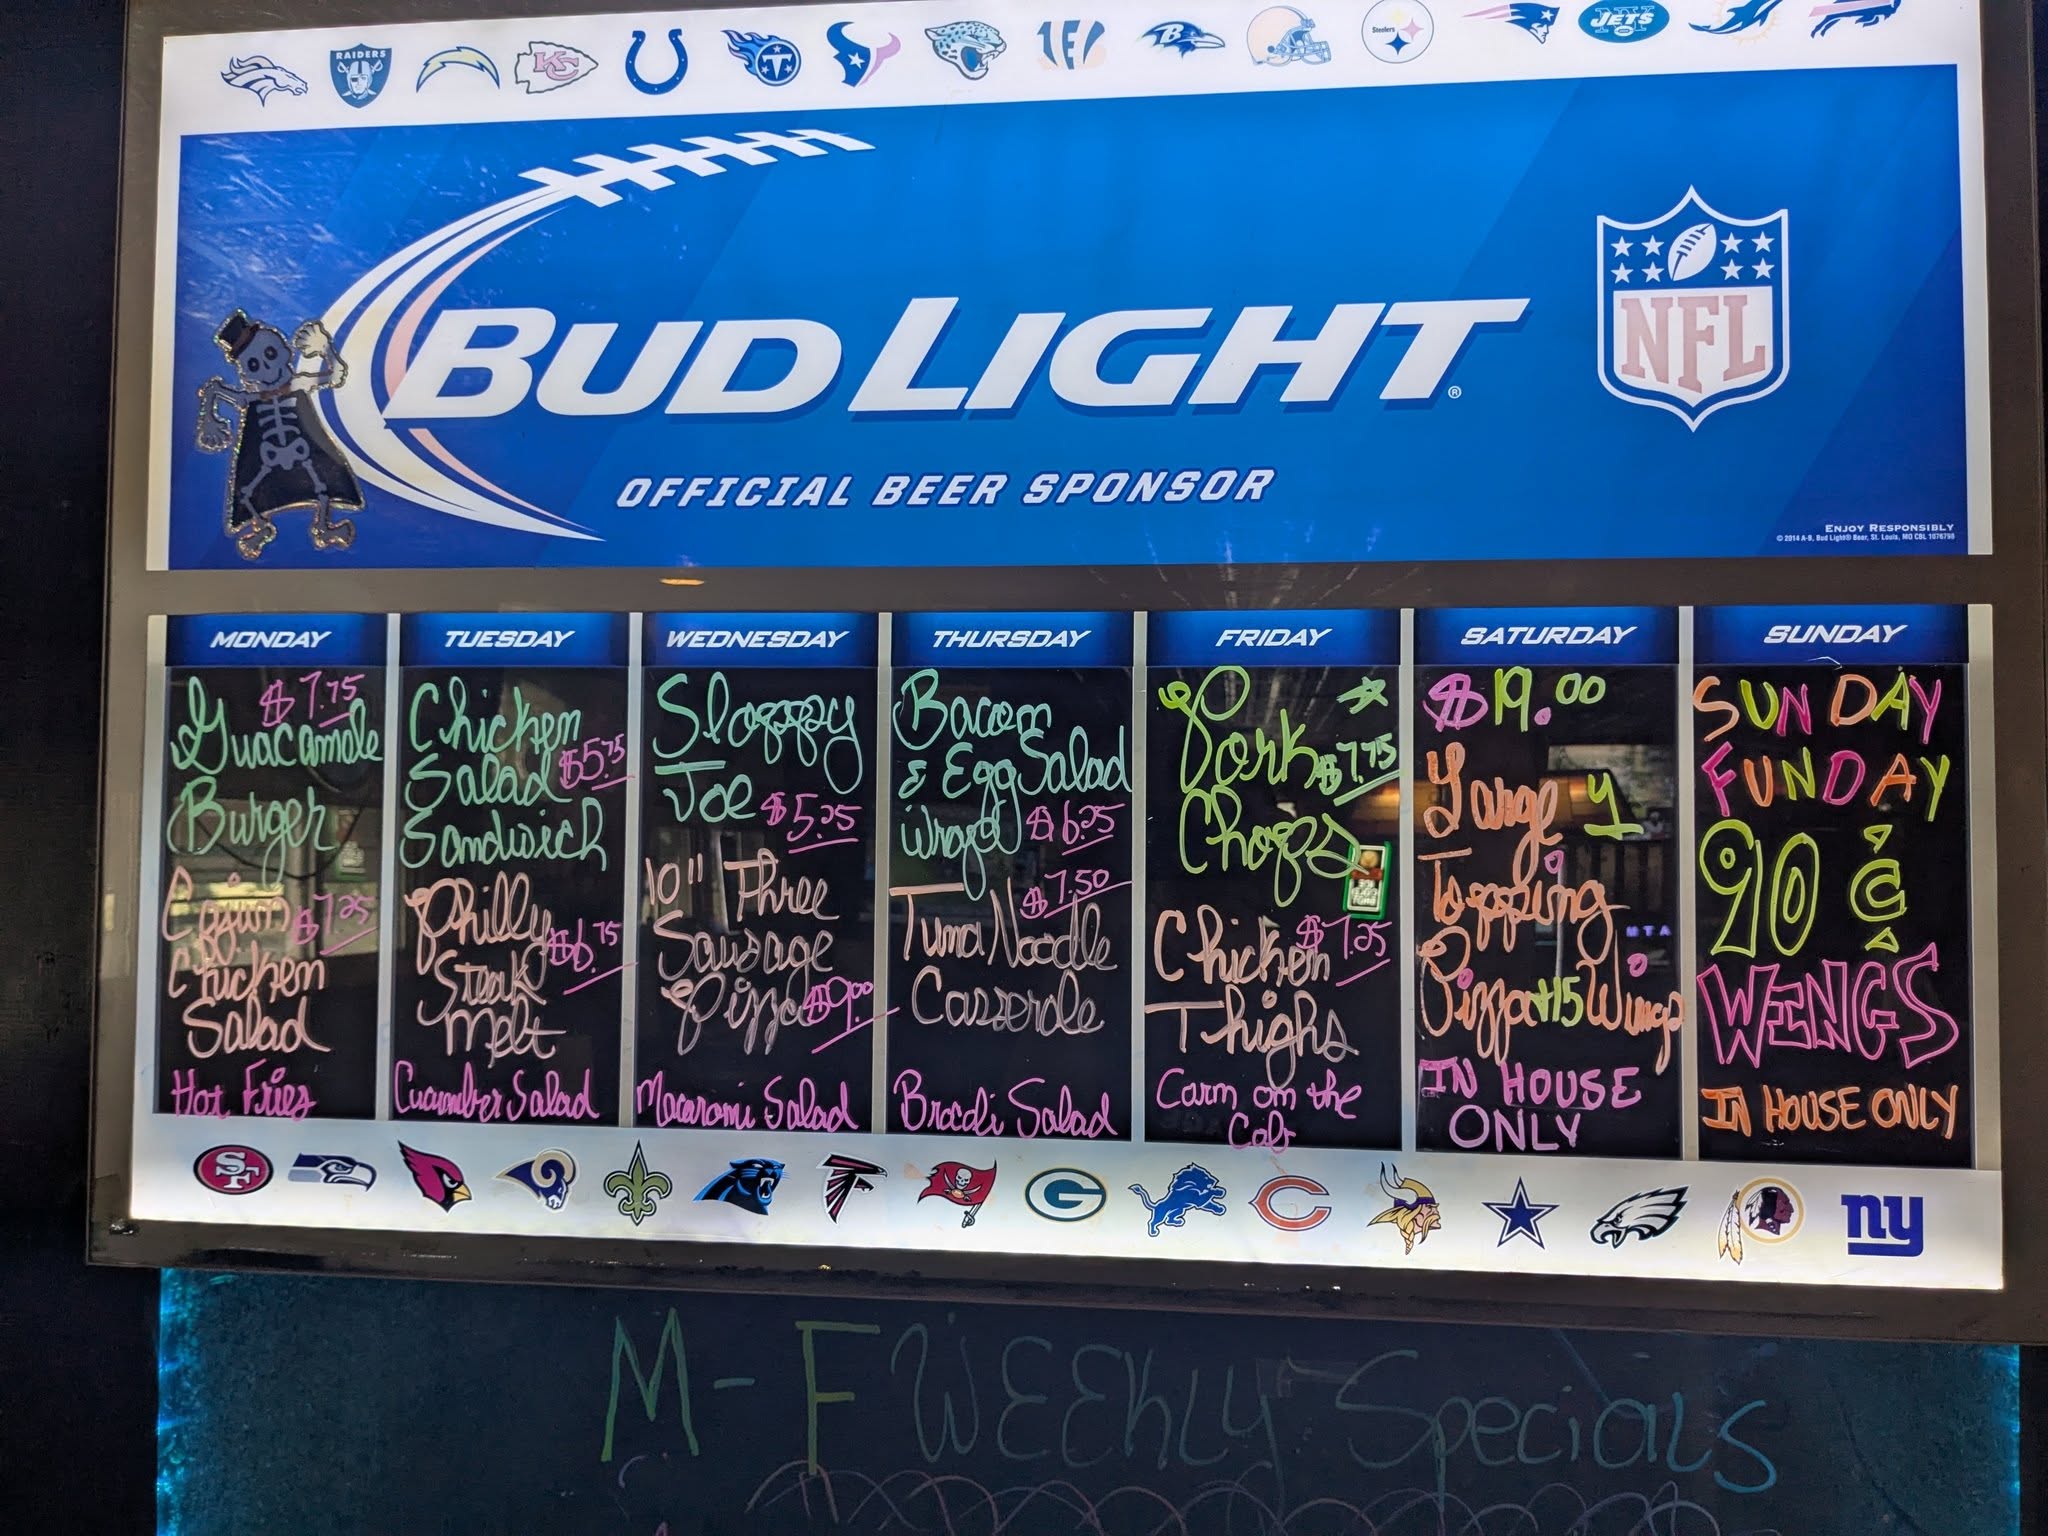 RAIDERS
KC
Steelers
JETS
BUD LIGHT®
OFFICIAL BEER SPONSOR
NFL
ENJOY RESPONSIBLY
© 2014 A-B, Bud Light® Beer, St. Louis, MO CBL 1076798
MONDAY
$7.75
Guacamole
Burger
Cajun $7.25
Chicken
Salad
Hot Fries
TUESDAY
Chicken
Salad $5.75
Sandwich
Philly
$6.75
Steak
Melt
Cucumber Salad
WEDNESDAY
Sloppy
Joe $5.25
10" Three
Sausage
Pizza $9.00
Macaroni Salad
THURSDAY
Bacon
& Egg Salad
Wrap $6.25
$7.50
Tuna Noodle
Casserole
Brocoli Salad
FRIDAY
Pork $7.75
Chops
Chicken $7.25
Thighs
Corn on the
Cob
SATURDAY
$19.00
Large 1
Topping
Pizza + 15 Wings
IN HOUSE
ONLY
SUNDAY
SUNDAY
FUNDAY
90 ¢
WINGS
IN HOUSE ONLY
SF
G
C
ny
M-F WEEKLY Specials